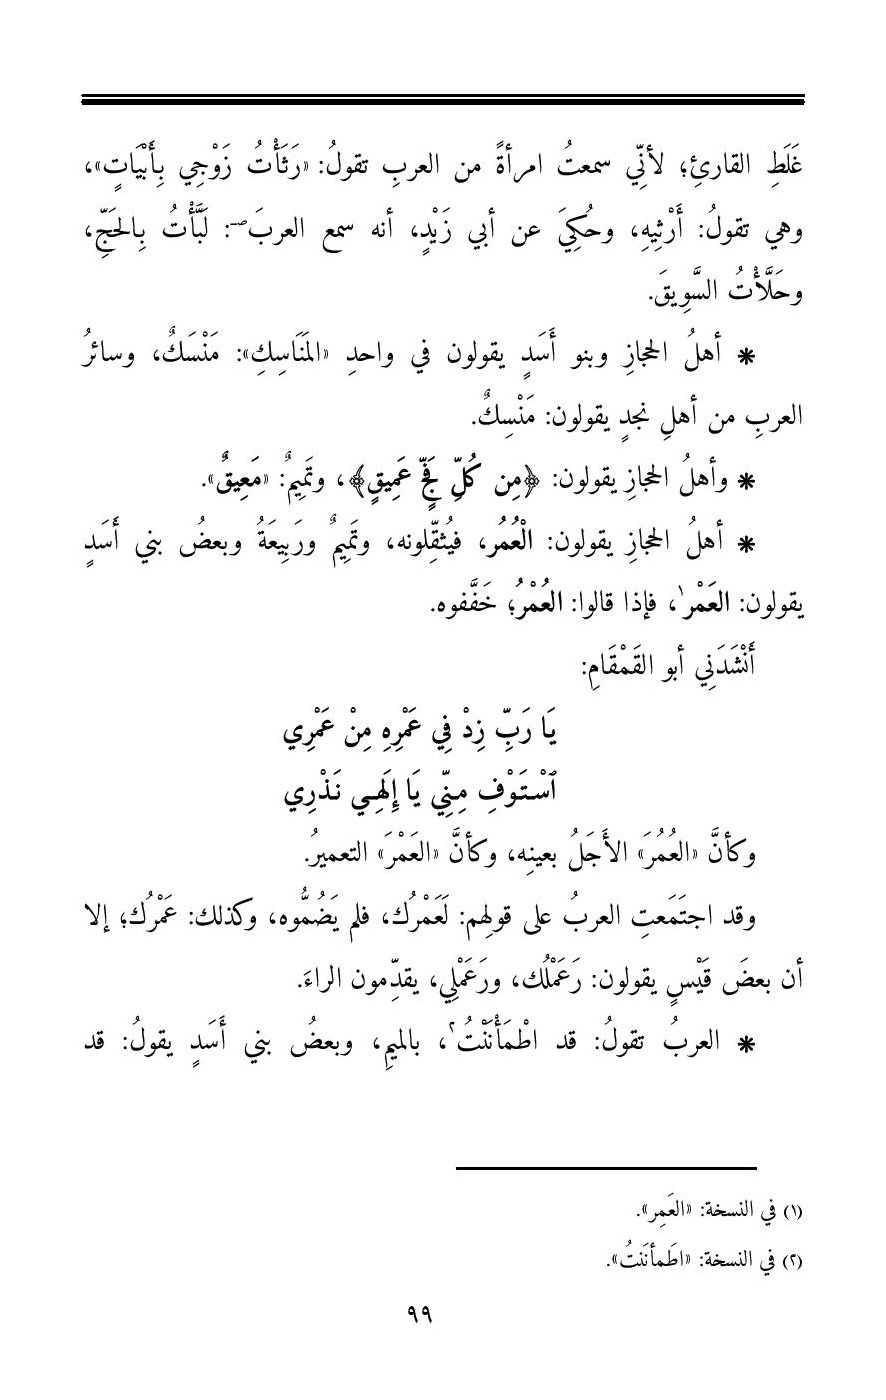 غَلَطِ القارئِ؛ لأنِّي سمعتُ امرأةً من العربِ تقولُ: «رَثَأْتُ زَوْجِي بِأَبْيَاتٍ»،
وهي تقولُ: أَرْثِيهِ، وحُكِيَ عن أبي زَيْدٍ، أنه سمع العربَ: لَبَّأْتُ بِالحَجِّ،
وحَلَّأْتُ السَّوِيقَ.
* أهلُ الحجازِ وبنو أَسَدٍ يقولون في واحدِ «المَنَاسِكِ»: مَنْسَكٌ، وسائرُ
العربِ من أهلِ نجدٍ يقولون: مَنْسِكٌ.
* وأهلُ الحجازِ يقولون: ﴿مِن كُلِّ فَجٍّ عَمِيقٍ﴾، وتَمِيمٌ: «مَعِيقٌ».
* أهلُ الحجازِ يقولون: الْعُمُر، فيُثقِّلونه، وتَمِيمٌ ورَبِيعَةُ وبعضُ بني أَسَدٍ
يقولون: العَمْر١، فإذا قالوا: العُمْرُ؛ خَفَّفوه.
أَنْشَدَنِي أبو القَمْقَامِ:
يَا رَبِّ زِدْ فِي عَمْرِهِ مِنْ عَمْرِي
ٱسْتَوْفِ مِنِّي يَا إِلَهِي نَذْرِي
وكأنَّ «العُمُرَ» الأَجَلُ بعينِه، وكأنَّ «العَمْرَ» التعميرُ.
وقد اجتَمَعتِ العربُ على قولِهم: لَعَمْرُك، فلم يَضُمُّوه، وكذلك: عَمْرُك؛ إلا
أن بعضَ قَيْسٍ يقولون: رَعَمْلُك، ورَعَمْلِي، يقدِّمون الراءَ.
* العربُ تقولُ: قد اطْمَأْنَنْتُ٢، بالميمِ، وبعضُ بني أَسَدٍ يقولُ: قد
(١) في النسخة: «العَمِر».
(٢) في النسخة: «اطَمأنَنتُ».
٩٩